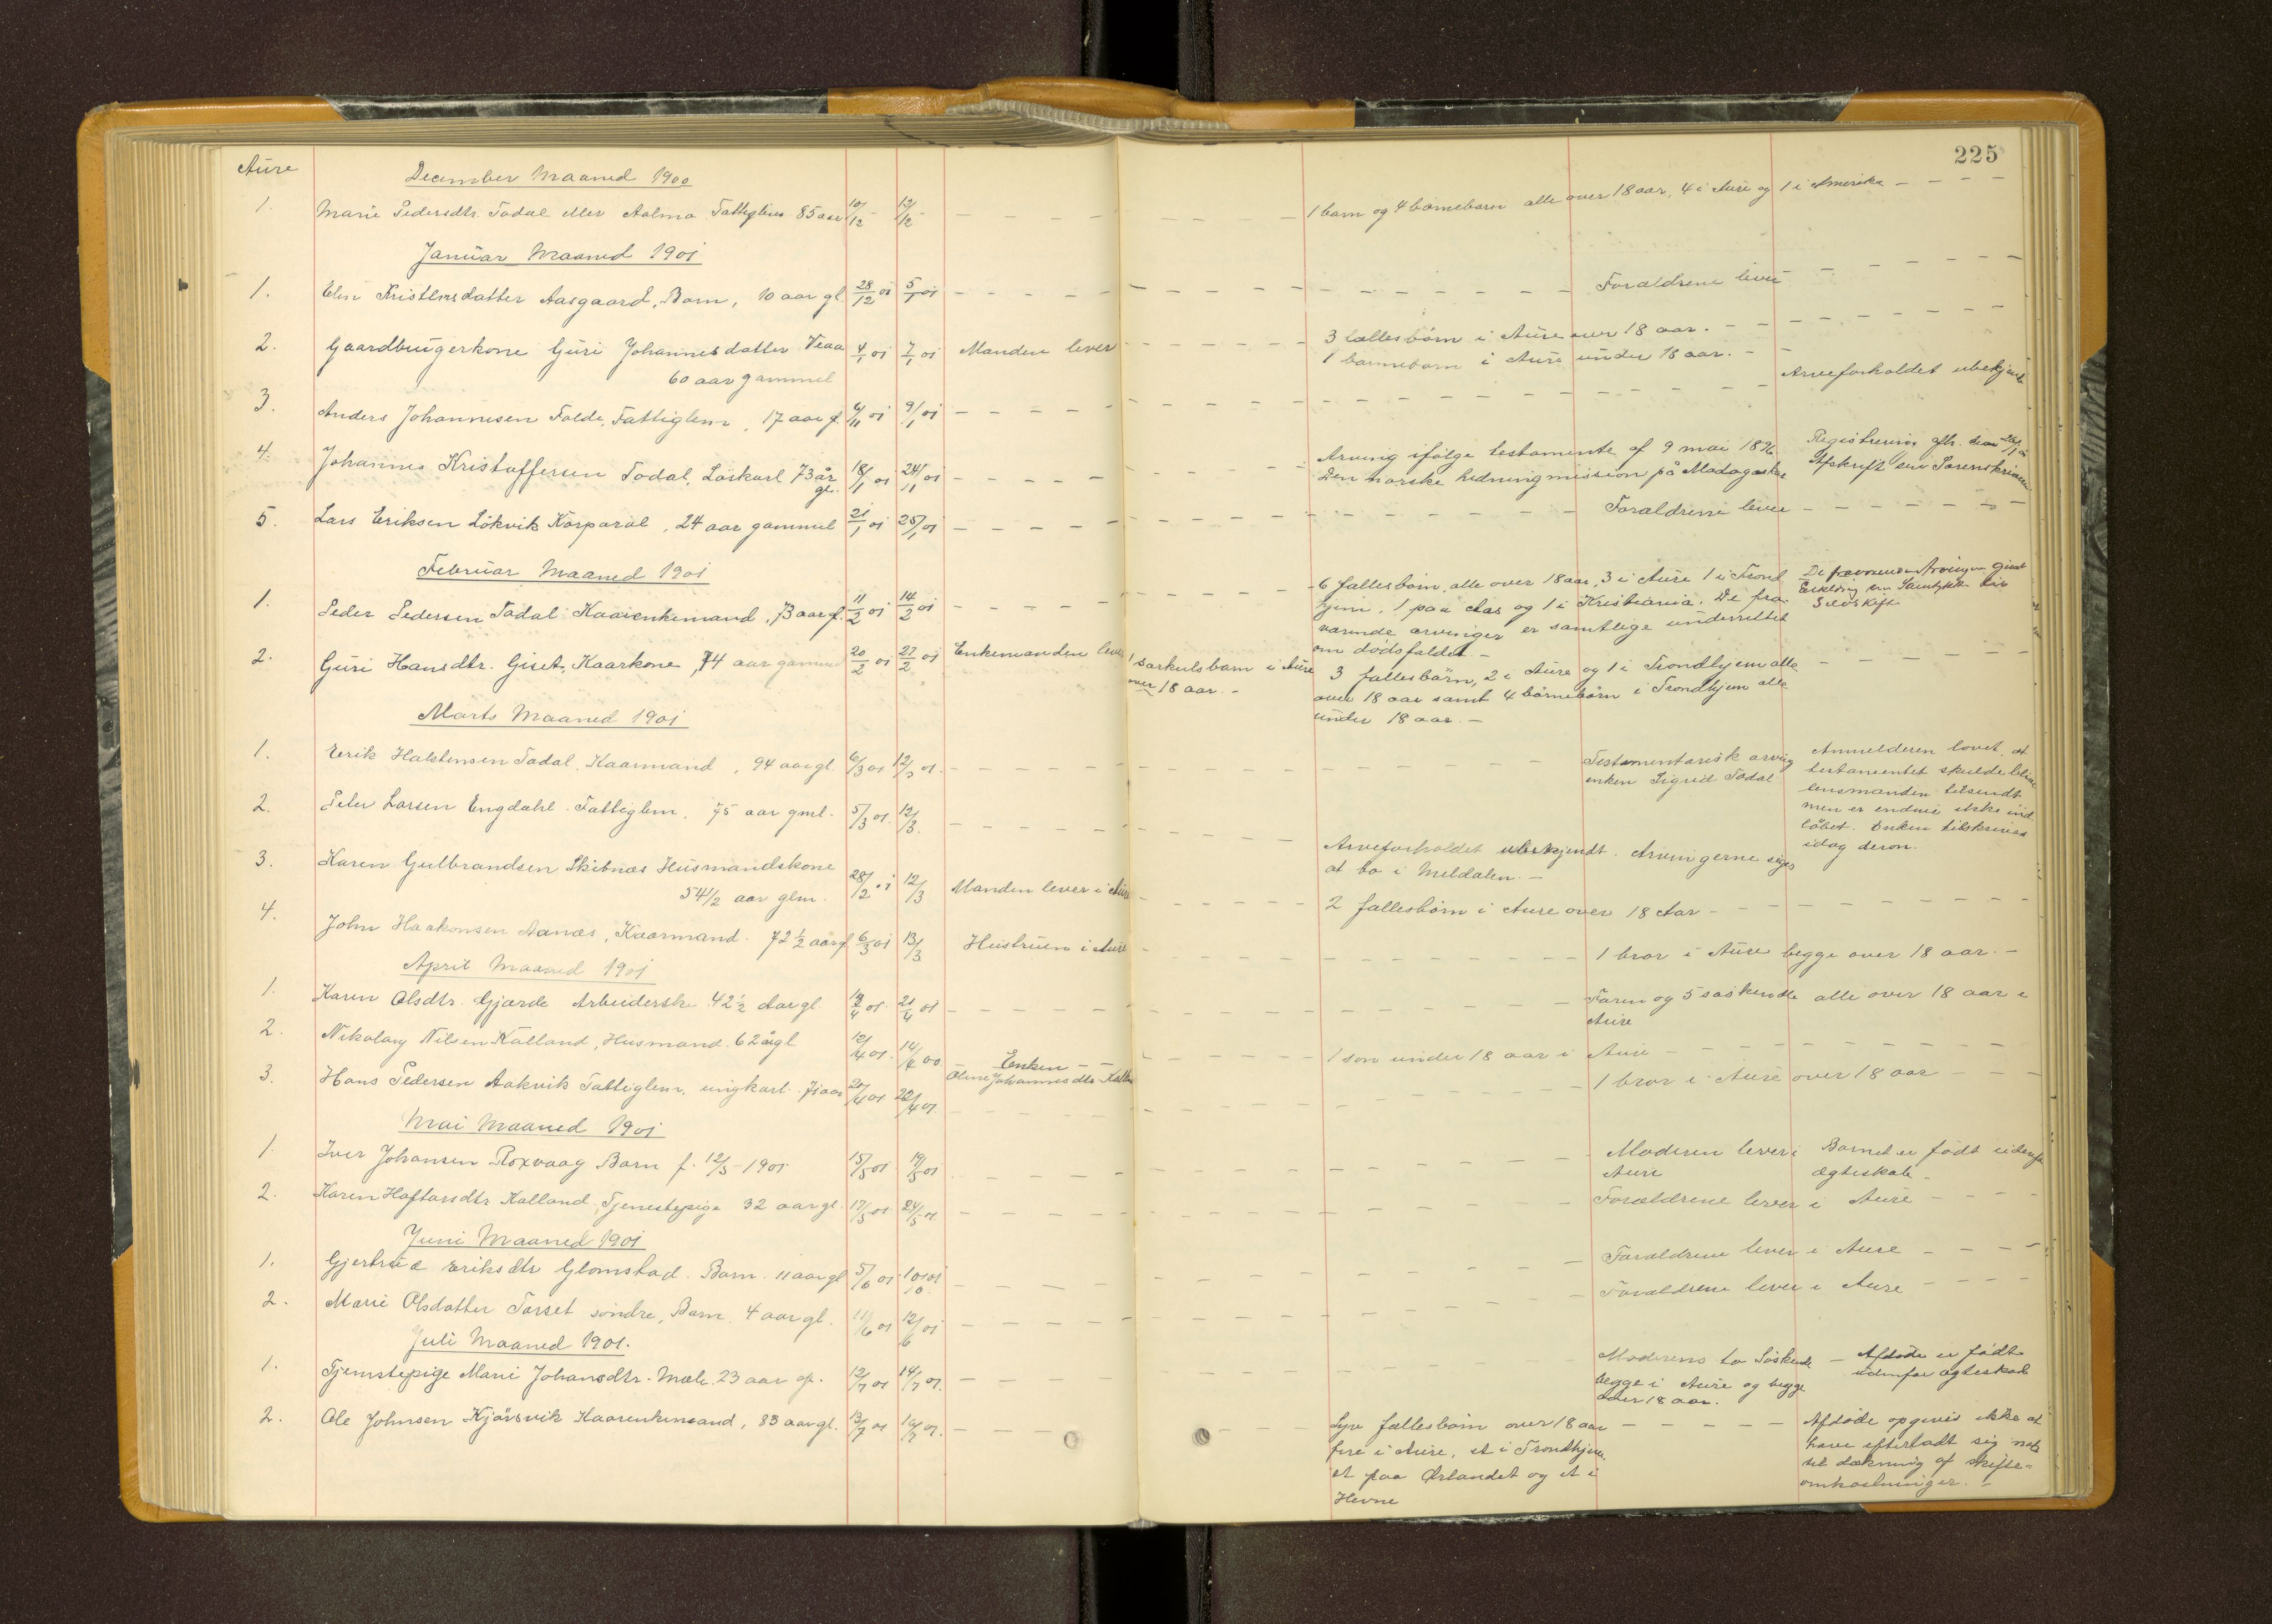 225
Aure
December Maaned 1900
1. Marie Pedersdtr. Todal eller Aalmo Fattiglem 85 aar 10/12 12/12 1 barn og 4 börnebarn alle over 18 aar, 4 i Aure og 1 i Amerika
Januar Maaned 1901
1. Elen Kristensdatter Aasgaard, Barn, 10 aar gl. 28/12 01 5/1 01 Forældrene lever
2. Gaardbrugerkone Guri Johannesdatter Veaa 4/1 01 7/1 01 Manden lever 3 fællesbörn i Aure over 18 aar.
60 aar gammel 1 barnebarn i Aure under 18 aar.
3. Anders Johannesen Folde, Fattiglem, 17 aar g. 6/1 01 9/1 01 Arveforholdet ubekjendt
4. Johannes Kristoffersen Todal, Löskarl 73 år gl. 18/1 01 24/1 01 Arving ifölge testamente af 9 mai 1896
Den norske hedningmission på Madagaskar
Registrering afh. den
Afskrift em Sorenskriveren
5. Lars Eriksen Lökvik Korporal, 24 aar gammel 21/1 01 25/1 01 Forældrene lever
Februar Maaned 1901
1. Peder Pedersen Todal Kaarenkemand, 73 aar g. 11/2 01 14/2 01 6 fællesbörn, alle over 18 aar, 3 i Aure 1 i Trond
hjem, 1 paa Aas og 1 i Kristiania. De fra-
værende arvinger er samtlige underrettet
om dödsfaldet.
De fraværende Arvinger givet
Erklæring om Samtykke til
Selvskifte
2. Guri Hansdtr. Giset, Kaarkone, 74 aar gammel 20/2 01 27/2 01 Enkemanden lever 1 særkulsbarn i Aure
over 18 aar.
3 fællesbörn, 2 i Aure og 1 i Trondhjem alle
over 18 aar samt 4 börnebörn i Trondhjem alle
under 18 aar.
Marts Maaned 1901
1. Erik Halstensen Todal, Kaarmand, 94 aar gl. 6/3 01 12/3 01. Testamentarisk arving
enken Sigrid Todal
Anmelderen lovet at
testamentet skulde blive
lensmanden tilsendt
men er endnu ikke ind
löbet. Enken tilskrives
idag derom.
2. Peter Larsen Engdahl. Fattiglem, 75 aar gml. 5/3 01. 12/3. Arveforholdet ubekjendt. Arvingerne siges
at bo i Meldalen.
3. Karen Gulbrandsen Skibnæs Husmandskone
54 1/2 aar glm. 28/2 01 12/3 Manden lever i Aure 2 fællesbörn i Aure over 18 Aar
4. John Haakonsen Aanæs, Kaarmand. 72 1/2 aar g. 6/3 01 13/3 Hustruen i Aure 1 bror i Aure begge over 18 aar.
April Maaned 1901
1. Karen Olsdtr. Gjærde Arbeiderske 42 1/2 Aar gl. 19/4 01. 21/4 01 Faren og 5 söskende alle over 18 aar i
Aure
2. Nikolay Nilsen Kalland, Husmand. 62 år gl 12/4 01. 14/4 00. Enken
Oline Johannesdtr Kalland 1 sön under 18 aar i Aure
3. Hans Pedersen Aakvik Fattiglem, ungkarl. 71 aar 20/4 01 22/4 01. 1 bror i Aure over 18 aar
Mai Maaned 1901
1. Iver Johansen Roxvaag Barn f. 12/5-1901 15/5 01 19/5 01 Moderen lever i
Aure
Barnet er födt udenfor
ægteskab.
2. Karen Haftorsdtr Kalland, Tjenestepige 32 aar gl. 17/5 01 24/5 01. Forældrene lever i Aure
Juni Maaned 1901
1. Gjertrud Eriksdtr Glomstad. Barn. 11 aar gl 5/6 01 10/6 01 Forældrene lever i Aure
2. Marie Olsdatter Torset söndre, Barn, 4 aar gl. 11/6 01 12/6 01 Forældrene lever i Aure
Juli Maaned 1901.
1. Tjenstepige Marie Johansdtr. Mæle. 23 aar gl. 12/7 01 14/7 01. Moderens to Söskende
begge i Aure og begge
over 18 aar.
Afdöde er födt
udenfor ægteskab
2. Ole Johnsen Kjörsvik Kaarenkemand, 83 aar gl. 13/7 01 16/7 01. Syv fællesbörn over 18 aar
fire i Aure, et i Trondhjem,
et paa Ørlandet og et i
Hevne
Afdöde opgives ikke at
have efterladt sig nok
til dækning af skifte-
omkostninger.